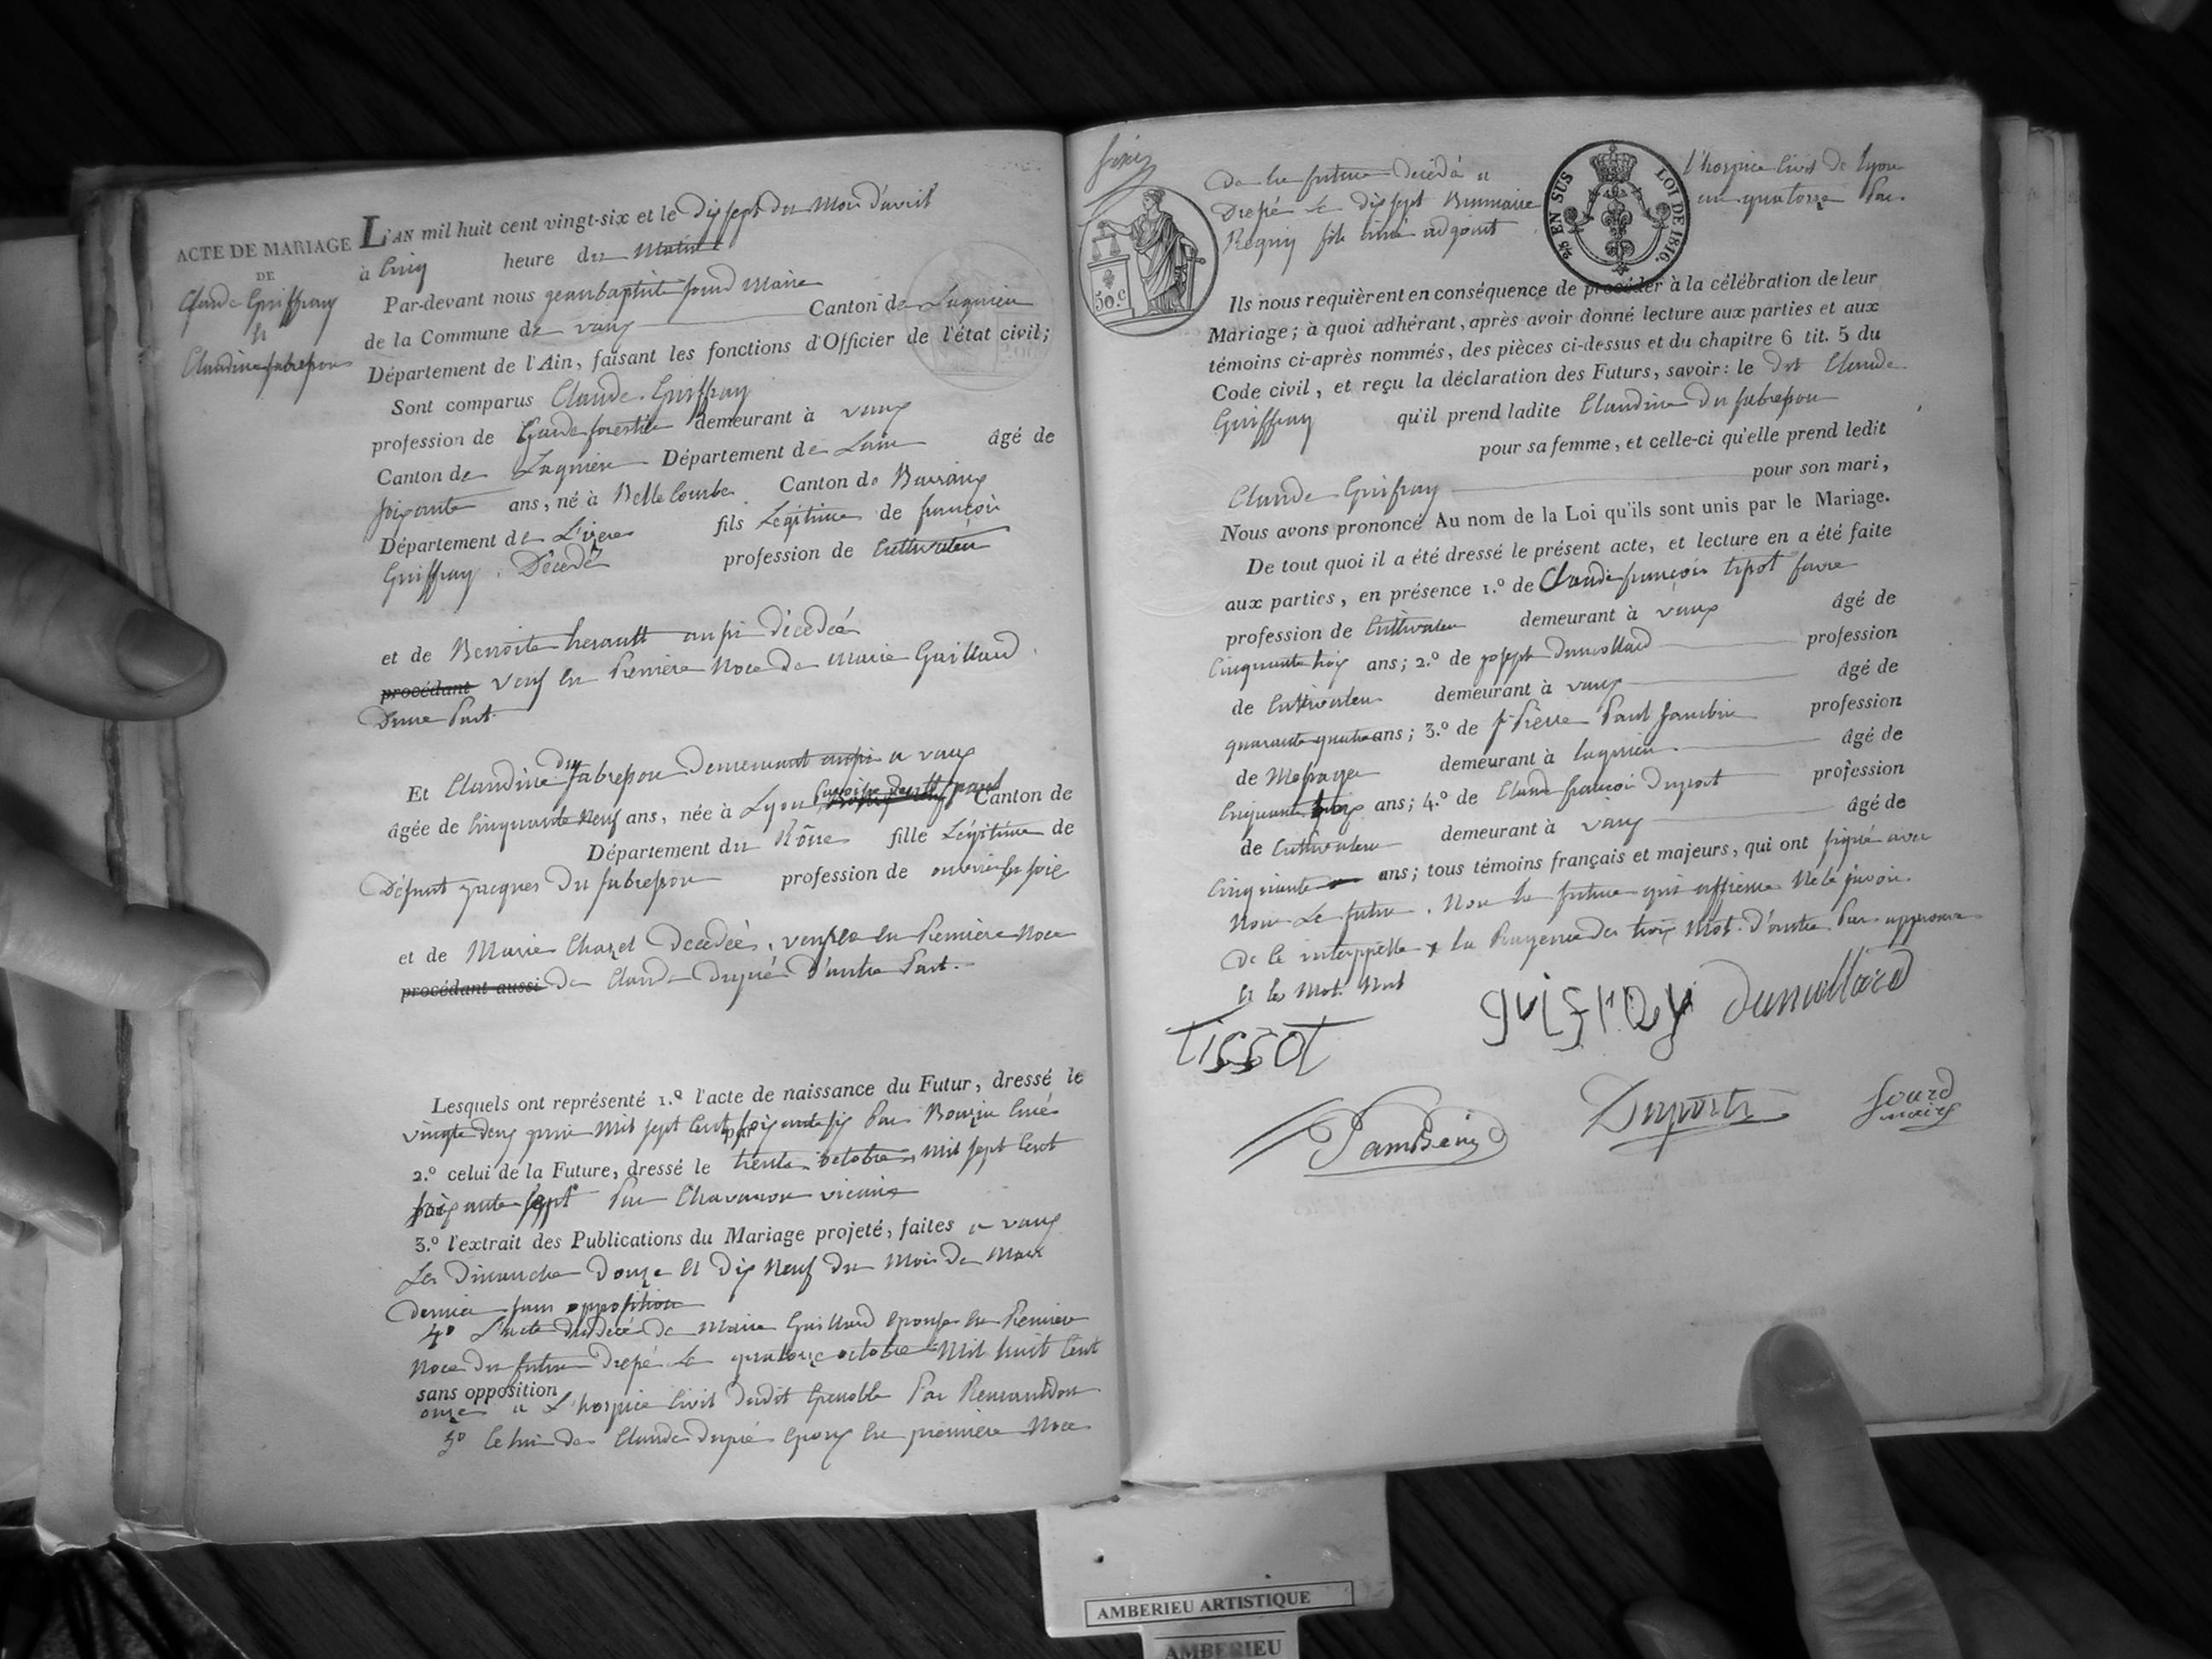 ACTE DE MARIAGE
DE
Claude Guiffray
et
Claudine fabresson
L'AN mil huit cent vingt-six et le dix sept du Mois d'avril
à Cinq heure du Matin
Par-devant nous jean baptiste sourd Maire
de la Commune de vaux Canton de Lagnieu
Département de l'Ain, faisant les fonctions d'Officier de l'état civil;
Sont comparus Claude Guiffray
profession de Garde forestier demeurant à vaux
Canton de Lagnieu Département de Lain âgé de
soixante ans, né à Belle Combe Canton de Barraux
Département de L'izere fils Legitime de françois
Guiffray Décédé profession de Cultivateur
et de Benoite herault aussi décedée
procédant veuf en Premiere Noce de Marie Gaillard
D'une Part.
Et Claudine du fabresson demeurant aussi a vaux
âgée de Cinquante Neuf ans, née à Lyon Canton de
Département du Rône fille Légitime de
Défunt jacques Du fabresson profession de ouvrier en soie
et de Marie Chazel Decedée, veuve en Premiere Noce
procédant aussi de Claude dupré D'autre Part.
Lesquels ont représenté 1.º l'acte de naissance du Futur, dressé le
vingte deux juin Mil sept Cent soixante six par Bouzin Curé
2.º celui de la Future, dressé le par trente octobre Mil sept Cent
soixante sept Par Chavanon vicaire
3.º l'extrait des Publications du Mariage projeté, faites a vaux
Les Dimanche Douze et Dix Neuf du Mois de Mars
dernier sans opposition
4º L'acte de décé de Marie Gaillard épouse en Premiere
Noce du futur Dressé le quatorze octobre Mil huit Cent
sans opposition
onze a L'hospice Civil dudit Grenoble Par
5º Celui de Claude dupré epoux en premiere Noce
de la future décédé a l'hospice Civil de Lyon
Dressé le dix sept Brumaire an quatorze Par
adjoint
50 c
25 EN SUS LOI DE 1816.
Ils nous requièrent en conséquence de procéder à la célébration de leur
Mariage; à quoi adhérant, après avoir donné lecture aux parties et aux
témoins ci-après nommés, des pièces ci-dessus et du chapitre 6 tit. 5 du
Code civil, et reçu la déclaration des Futurs, savoir: le dit Claude
Guiffray qu'il prend ladite Claudine Du fabresson
pour sa femme, et celle-ci qu'elle prend ledit
Claude Guifray pour son mari,
Nous avons prononcé Au nom de la Loi qu'ils sont unis par le Mariage.
De tout quoi il a été dressé le présent acte, et lecture en a été faite
aux parties, en présence 1.º de Claude françois tissot favre
profession de Cultivateur demeurant à vaux âgé de
Cinquante trois ans; 2.º de joseph dumollard profession
de Cultivateur demeurant à vaux âgé de
quarante quatre ans; 3.º de Pierre Paul Jambin profession
de Messager demeurant à lagnieu âgé de
Cinquante trois ans; 4.º de Claude françois duport profession
de Cultivateur demeurant à vaux âgé de
Cinquante ans; tous témoins français et majeurs, qui ont signé avec
Nous Le futur. Non la future qui affirme Ne le savoir.
De ce interppellé La Rayure des trois Mot. D'autre Part approuvé
et les Mot. Nul
Tissot
guifray
dumollard
Jambin
Duport
Sourd
maire
AMBERIEU ARTISTIQUE
AMBERIEU